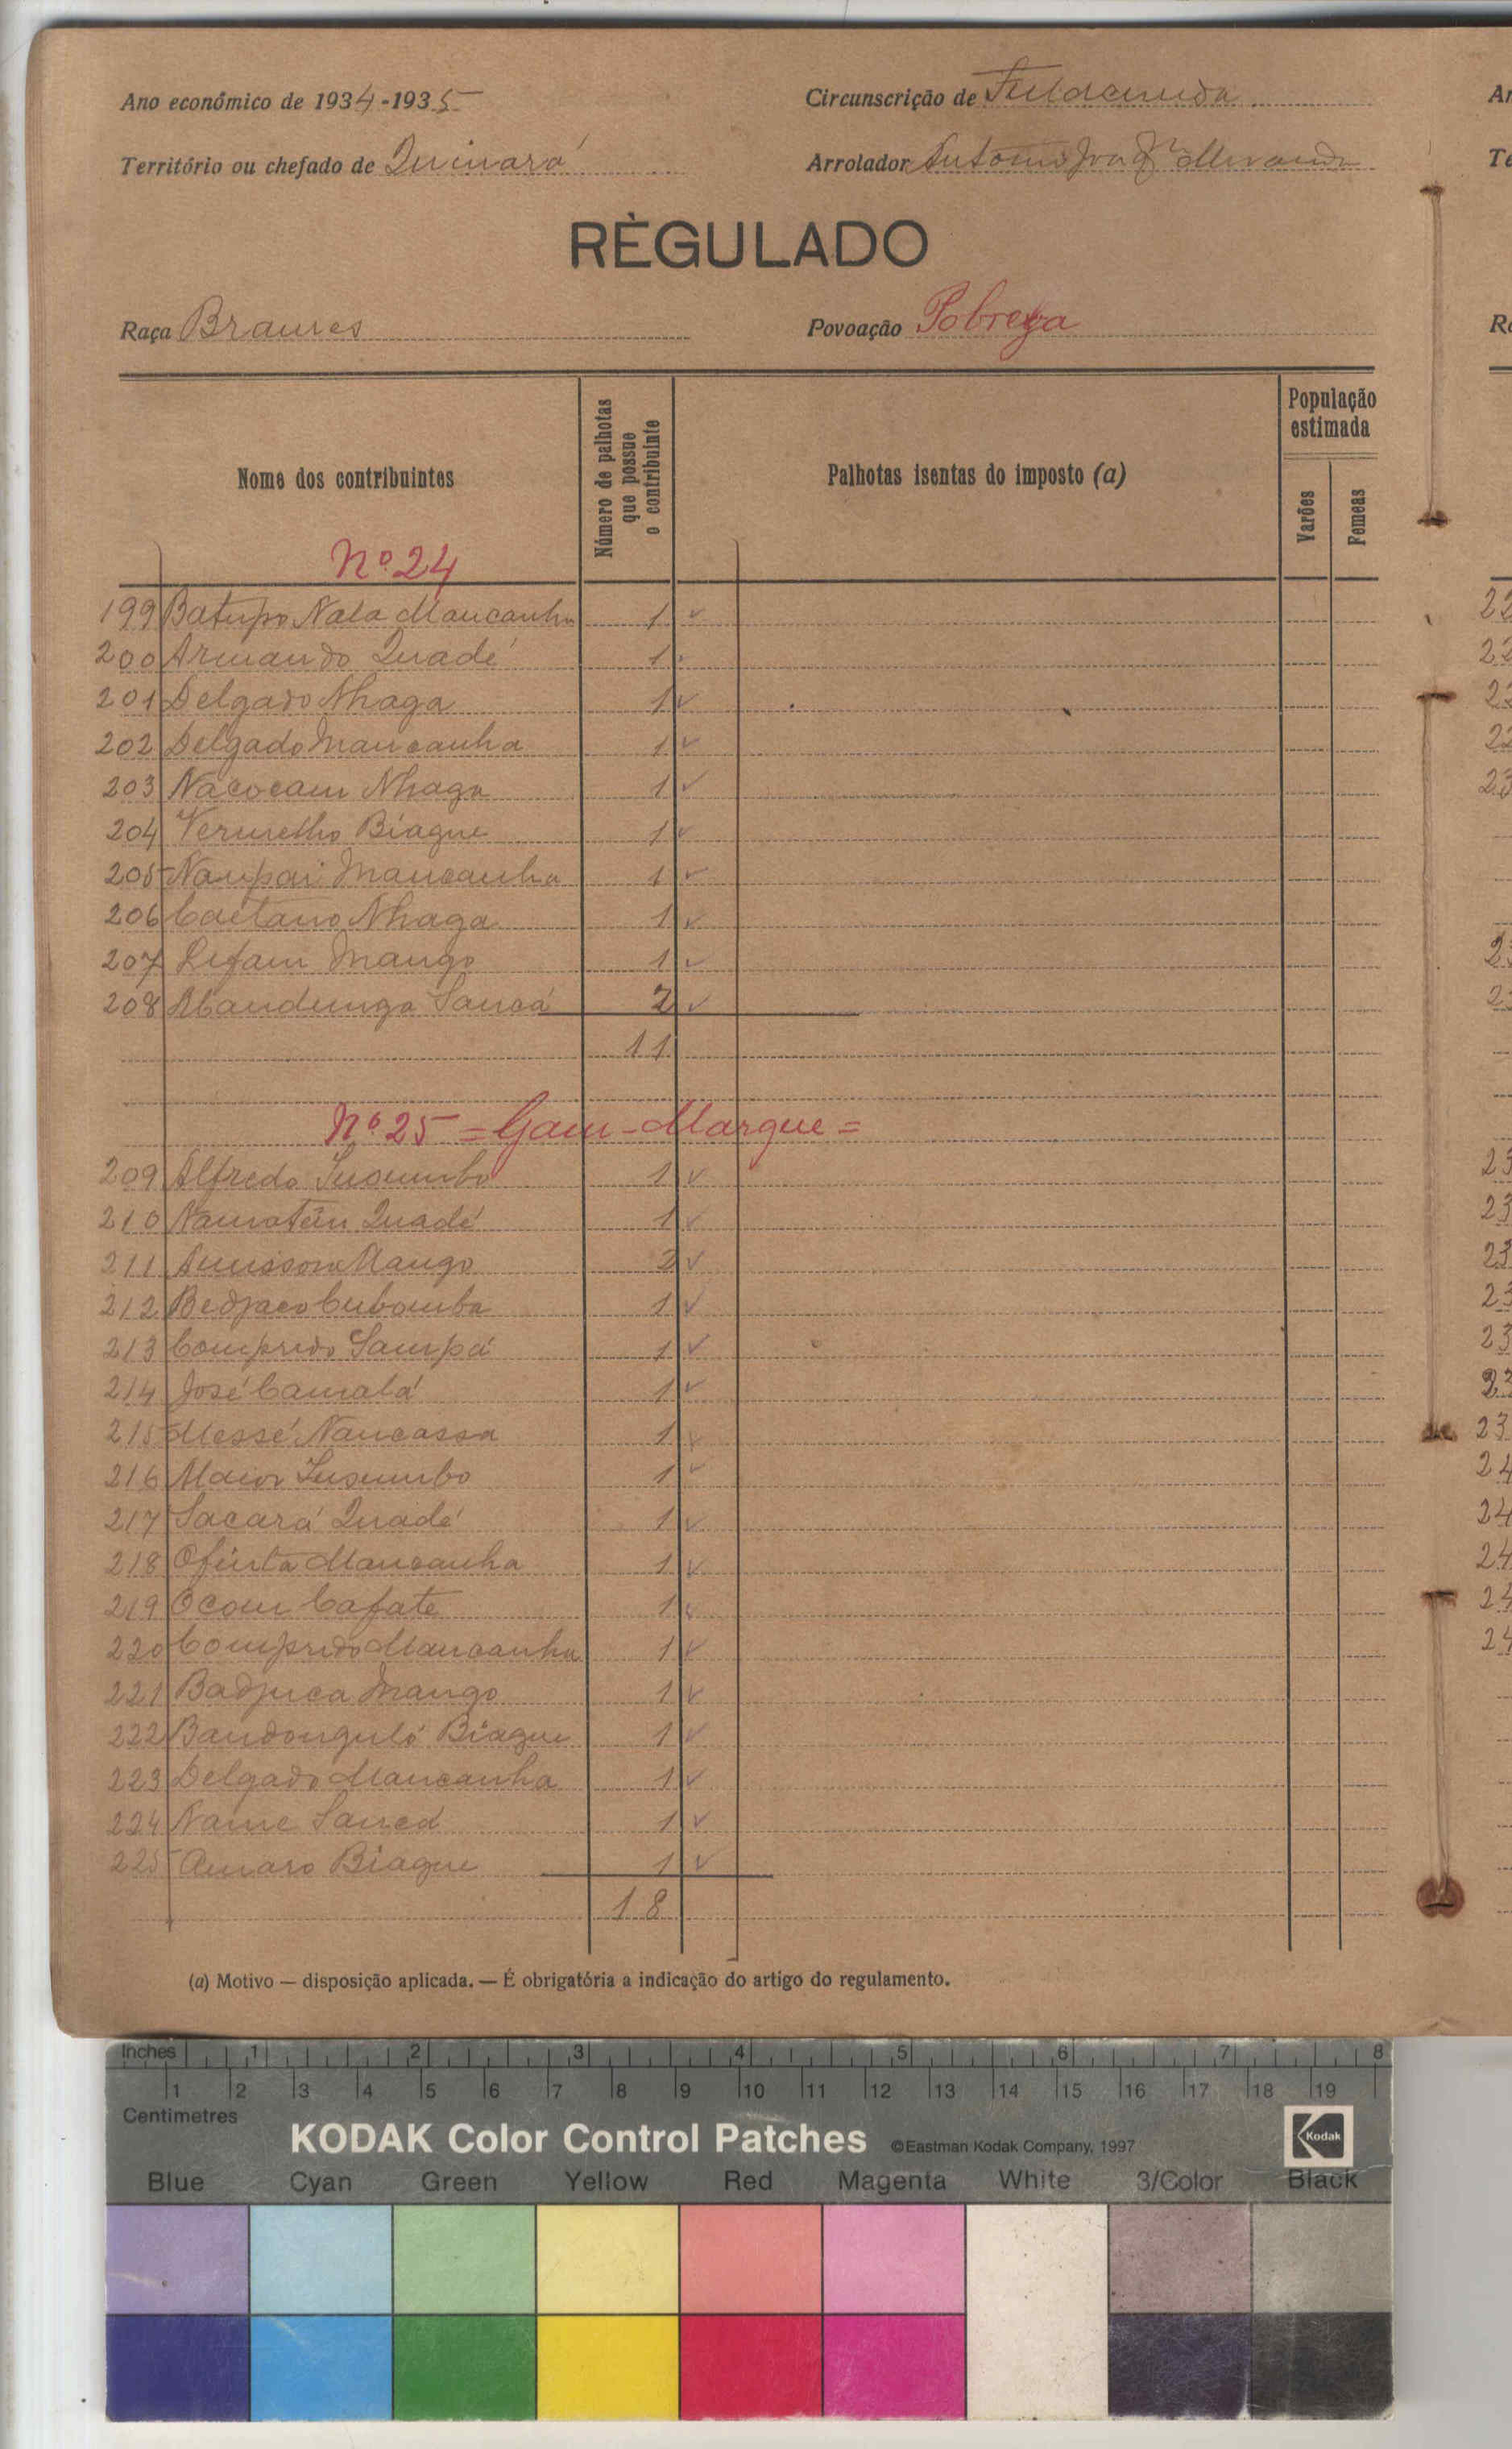 Ano económico de 1934-1935
Circunscrição de Fulacunda
Território ou chefado de Quinará
Arrolador António
RÈGULADO
Raça Brames
Povoação Pobreza
Nome dos contribuintes
Número de palhotas que possue o contribuinte
Palhotas isentas do imposto (a)
População estimada
Varões
Femeas
Nº 24
199 Batupo Nala Mancanha 1 ✓
200 Armando Quadé 1
201 Delgado Nhaga 1 ✓
202 Delgado Mancanha 1 ✓
203 Nacocam Nhaga 1 ✓
204 Vermelho Biague 1 ✓
205 Naupai Mancanha 1 ✓
206 Caetano Nhaga 1 ✓
207 Mango 1 ✓
208 Mandunga Sancá 2 ✓
11
Nº 25 = Gam-Margue =
209 Alfredo 1 ✓
210 Quadé 1 ✓
211 Mango 2 ✓
212 1 ✓
213 Comprido Sampá 1 ✓
214 José Camalá 1 ✓
215 Messé Nancassa 1 ✓
216 Maior 1 ✓
217 Sacará Quadé 1 ✓
218 Mancanha 1 ✓
219 Ocom Cafate 1 ✓
220 Comprido Mancanha 1 ✓
221 Badjuca Mango 1 ✓
222 Biague 1 ✓
223 Delgado Mancanha 1 ✓
224 Name Sancá 1 ✓
225 Amaro Biague 1 ✓
18
(a) Motivo — disposição aplicada. — É obrigatória a indicação do artigo do regulamento.
Inches 1 2 3 4 5 6 7 8
1 2 3 4 5 6 7 8 9 10 11 12 13 14 15 16 17 18 19
Centimetres
KODAK Color Control Patches ©Eastman Kodak Company, 1997 Kodak
Blue Cyan Green Yellow Red Magenta White 3/Color Black